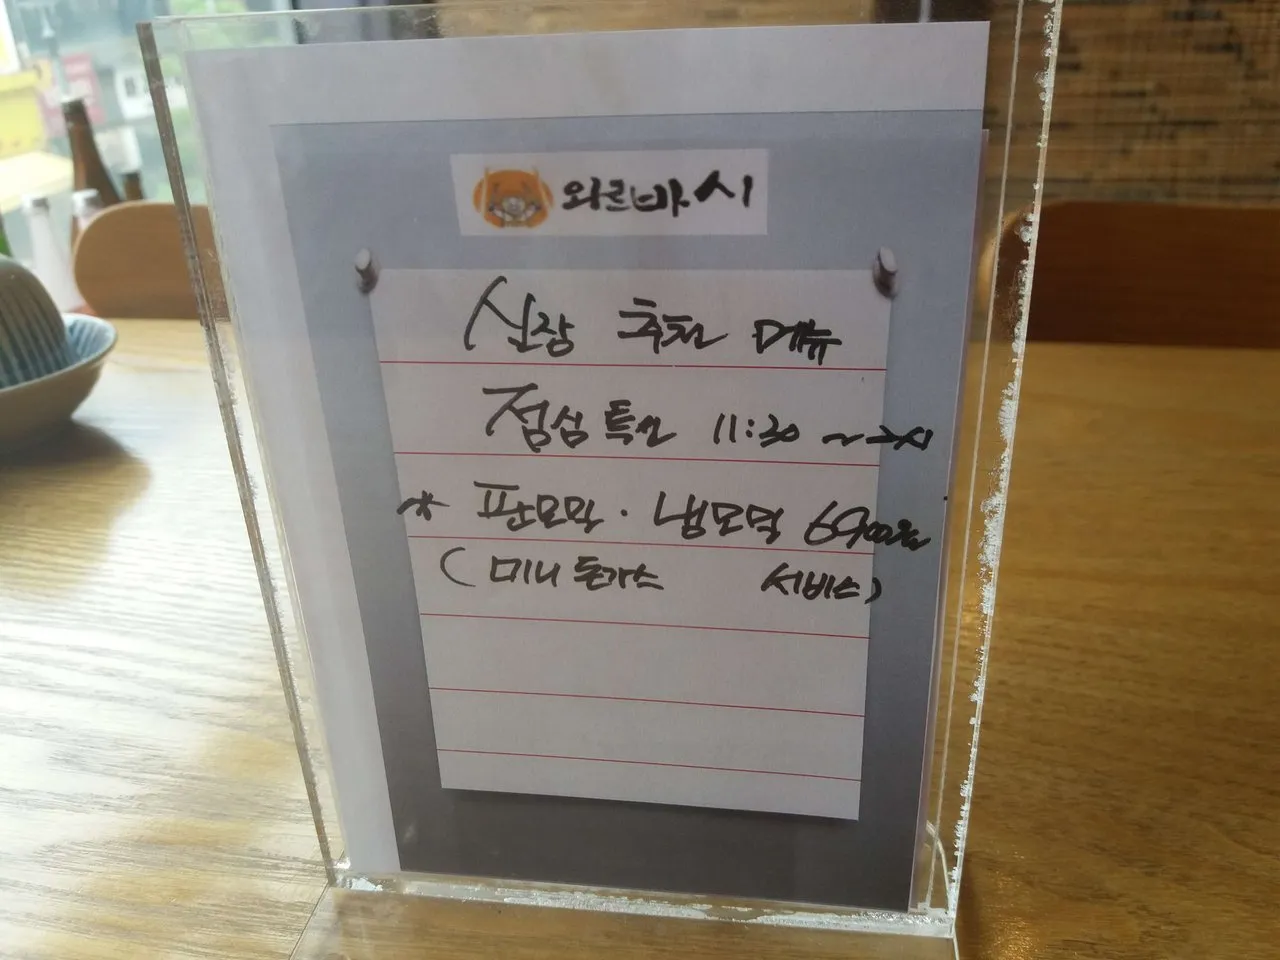 와르바시
신장 추천 메뉴
점심 특선 11:30 ~ 2시
* 판모밀 · 냉모밀 6900원
( 미니 돈가스 서비스)